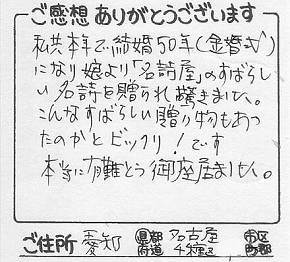 ご感想ありがとうございます
私共本年で結婚50年(金婚式)
になり娘より「名詩屋」のすばらし
い名詩を贈られ驚きました。
こんなすばらしい贈り物もあっ
たのかとビックリ!です
本当に有難とう御座居ました。
ご住所 愛知 都道府県 名古屋 千種区 市区町郡